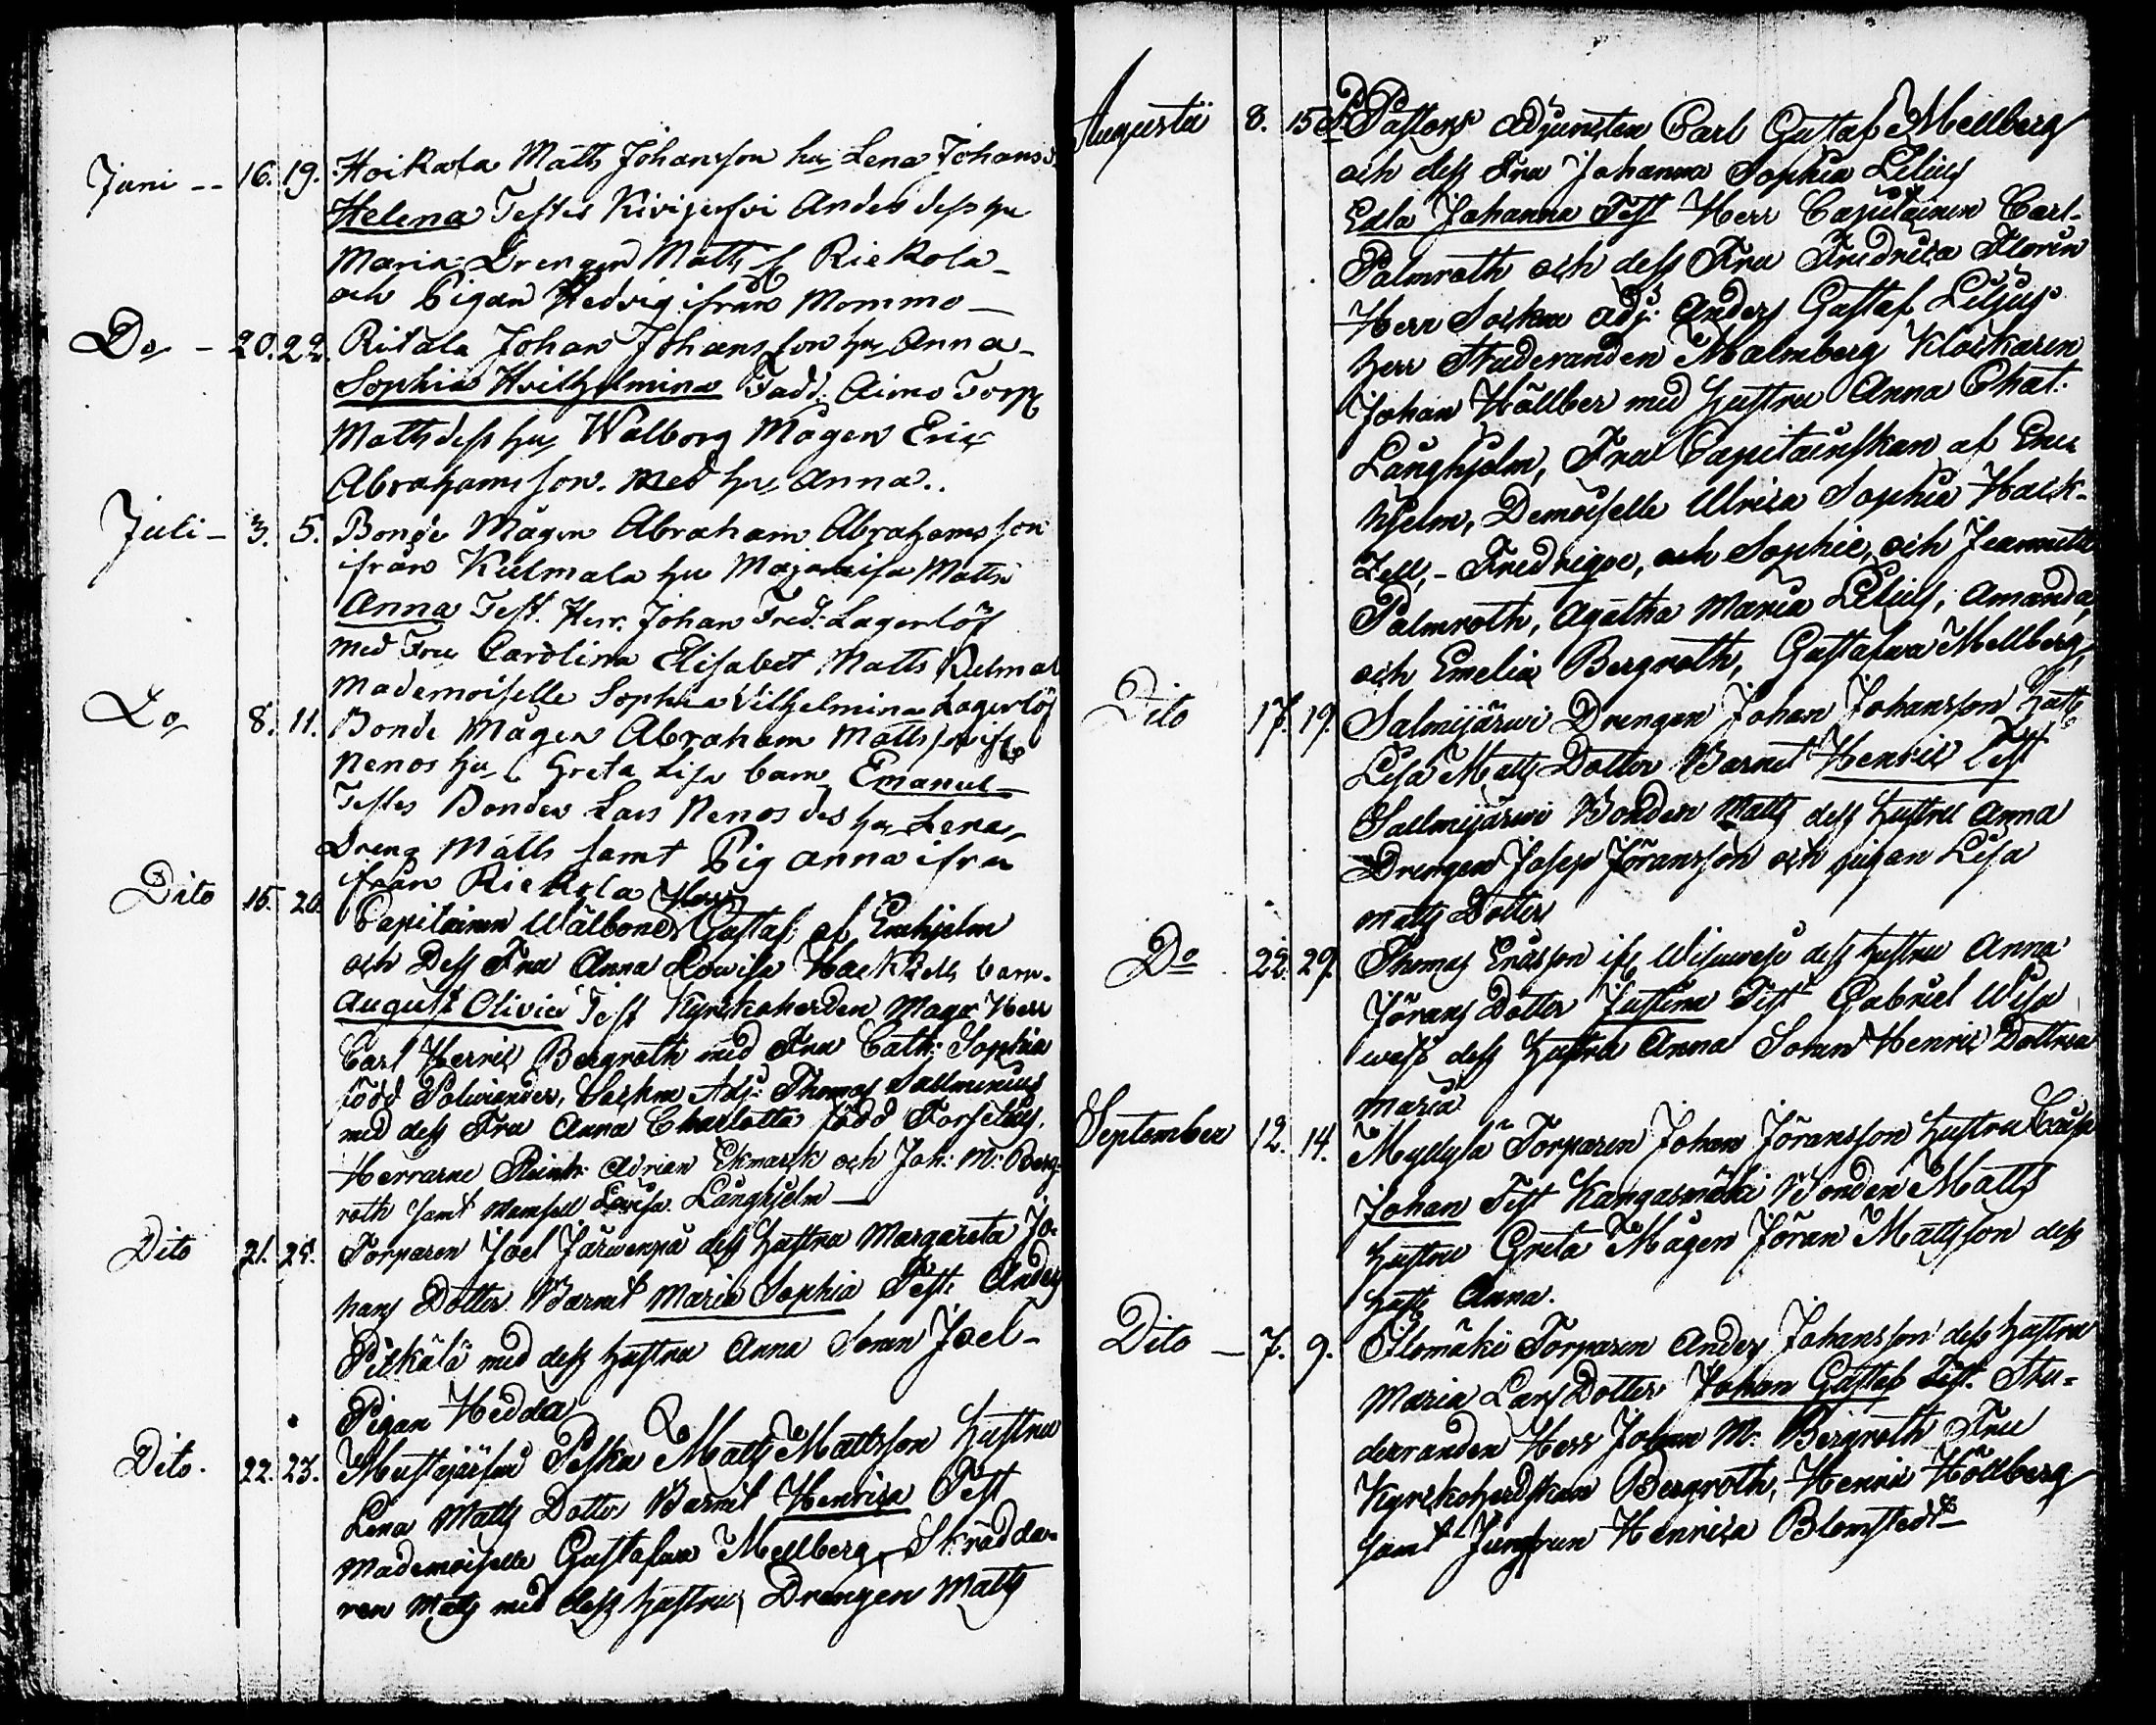 Juni -- 16. 19. Hoikala Matts Johansson hu Lena Johansd.
Helena Testes Kivijerfvi Anders dess hu
Maria Drengen Matts f Riekola
och Pigan Hedvig ifrån Mommo
Do - 20. 22. Ritala Johan Johansson hu Anna
Sophia Wilhelmina Fadd. Aimo Torp
Matts dess hu Walborg Mågen Eric
Abrahamsson. med hu Anna..
Juli - 3. 5. Bonde Mågen Abraham Abrahamsson
ifrån Kulmala hu Majalisa Matts
Anna Test. Herr. Johan Fred. Lagerlöf
med Fru Carolina Elisabet Matts Kulmal
Mademoiselle Sophia Vilhelmina Lagerlöf
Do 8. 11. Bonde Mågen Abraham Mattsson ifr
Nenos hu Greta Lisa barn Emanuel
Testes Bonden Lars Nenos des hu Lena
Dreng Matts samt Pig Anna ifrån
ifrån Riekola
Dito 15. 20. Capitainen Wälborne Herr Gustaf af Enehjelm
och Dess Fru Anna Lowisa Hackzell barn.
August Olivier Test Kyrkoherden Mag. Herr
Carl Henric Bergroth med Fru Cath: Sophia
född Polviander, Sockne Adj: Thomas Salmenius
med dess Fru Anna Charlotta född Forselius,
Herrarne Reinh: Adrian Ekmarck och Joh: M: Berg-
roth samt Mamsell Lovisa Långhjelm
Dito 21. 25. Torparen Joel Järwenpä dess hustru Margareta Jo-
hans Dotter Barnet Maria Sophia Test: Anders
Pitkälä med dess hustru Anna Sonen Joel-
Pigan Hedda
Dito. 22. 23. Mustajärfwi Matts Mattsson hustru
Lena Matts Dotter Barnet Henrica Test
Mademoiselle Gustafwa Mellberg, Skrädda-
ren Matts med dess hustru, Drengen Matts
Augusti 8. 15 Pastors Adjuncten Carl Gustaf Mellberg
och dess Fru Johanna Sophia Lilius
Edla Johanna Test Herr Capitainen Carl
Palmroth och dess Fru Fredrica Florin
Herr Sockne Adj: Anders Gustaf Lilius
herr Studeranden Malmberg Klockaren
Johan Hällber med hustru Anna Chat.
Långhjelm, Fru Capitainskan af Ene-
hjelm, Demoiselle Ulrica Sophia Hack-
zell, - Fredrique, och Sophie, och Jeannette
Palmroth, Agatha Maria Lilius, Amanda,
och Emelia Bergroth, Gustafwa Mellberg,
Dito 17. 19. Salmijärwi Drengen Johan Johansson hust
Lisa Matts Dotter Barnet Henric Test
Sallmijärwi Bonden Matts dess hustru Anna
Drengen Josep Jöransson och pigan Lisa
Matts Dotter
Do 22. 29. Thomas Ericsson ifr Wisuwesi dess hustru Anna
Jörans Dotter Justina Test Gabriel Wisu
wesi dess hustru Anna Sonen Henric Dottren
Maria
September 12. 14. Myllylä Torparen Johan Jöransson hustru Caisa
Johan Test Kangasmäki Bonden Matts
hustru Greta Mågen Jöran Mattsson dess
hust Anna.
Dito - 7. 9. Ilomäki Torparen Anders Johansson dess hustru
Maria Lars Dotter Johan Gustaf Test. Stu-
deranden Herr Johan M: Bergroth Fru
Kyrkoherdskan Bergroth, Henric Hällberg
samt Jungfrun Henrica Blomstedt